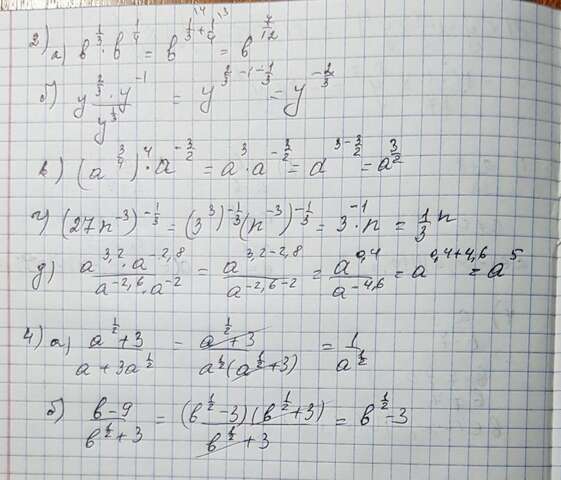 2) а) b^{1/3} · b^{1/4} = b^{1/3 + 1/4} = b^{7/12}
б) (y^{2/3} · y^{-1}) / y^{1/3} = y^{2/3 - 1 - 1/3} = y^{-2/3}
в) (a^{3/4})^4 · a^{-3/2} = a^3 · a^{-3/2} = a^{3 - 3/2} = a^{3/2}
г) (27n^{-3})^{-1/3} = (3^3)^{-1/3} (n^{-3})^{-1/3} = 3^{-1} · n = 1/3 n
д) (a^{3,2} · a^{-2,8}) / (a^{-2,6} · a^{-2}) = a^{3,2-2,8} / a^{-2,6-2} = a^{0,4} / a^{-4,6} = a^{0,4+4,6} = a^5
4) а) (a^{1/2} + 3) / (a + 3a^{1/2}) = (a^{1/2} + 3) / (a^{1/2}(a^{1/2} + 3)) = 1 / a^{1/2}
б) (b - 9) / (b^{1/2} + 3) = (b^{1/2} - 3)(b^{1/2} + 3) / (b^{1/2} + 3) = b^{1/2} - 3